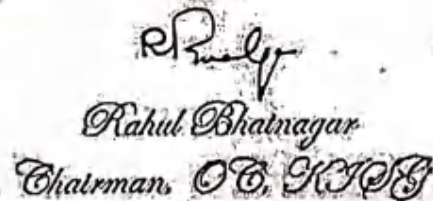 Rahul Bhatnagar
Chairman, OC, KISG